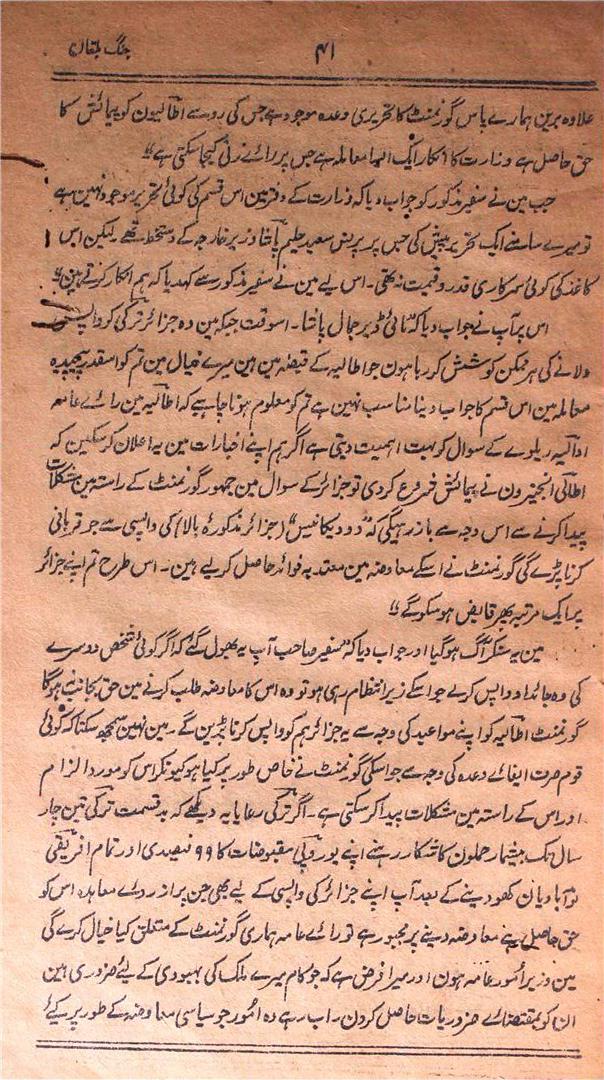 جنگ بلقان
۴۱
علاوہ برین ہمارے پاس گورنمنٹ کا تحریری وعدہ موجود ہے جس کی رو سے اطالیون کو پیمائش کا
حق حاصل ہے وزارت کا انکار ایک ایسا معاملہ ہے جس پر رائے زنی کیجا سکتی ہے"
جب مین نے سفیر مذکور کو جواب دیا کہ وزارت کے دفتر مین اس قسم کی کوئی تحریر موجود نہین ہے
تو میرے سامنے ایک تحریر پیش کی جس پر پرنس سعید حلیم پاشا وزیر خارجہ کے دستخط تھے لیکن اس
کاغذ کی کوئی سرکاری قدر و قیمت نہ تھی۔ اس لیے مین نے سفیر مذکور سے کہدیا کہ ہم انکار کرتے ہین"
اس پر آپ نے جواب دیا کہ "مائی ڈیر جمال پاشا۔ اسوقت جبکہ مین وہ جزائر ترکی کو واپس
دلانے کی ہر ممکن کوشش کر رہا ہون جو اطالیہ کے قبضہ مین ہین میرے خیال مین تم کو اسقدر پیچیدہ
معاملہ مین اس قسم کا جواب دینا مناسب نہین ہے تم کو معلوم ہونا چاہیے کہ اطالیہ مین رائے عامہ
اڈالیہ ریلوے کے سوال کو بہت اہمیت دیتی ہے اگر ہم اپنے اخبارات مین یہ اعلان کر سکین کہ
اطالی انجنیرون نے پیمائش شروع کر دی تو جزائر کے سوال مین جمہور گورنمنٹ کے راستہ مین مشکلات
پیدا کرنے سے اس وجہ سے باز رہیگی کہ "دودیکانیس" (جزائر مذکورۂ بالا) کی واپسی سے جو قربانی
کرنا پڑے گی گورنمنٹ نے اسکے معاوضہ مین معتد بہ فوائد حاصل کر لیے ہین۔ اس طرح تم اپنے جزائر
پر ایک مرتبہ پھر قابض ہو سکوگے"
مین یہ سنکر آگ ہوگیا اور جواب دیا کہ "سفیر صاحب آپ یہ بھول گئے کہ اگر کوئی شخص دوسرے
کی وہ جائداد واپس کرے جو اسکے زیر انتظام رہی ہو تو وہ اس کا معاوضہ طلب کرنے مین حق بجانب ہوگا
گورنمنٹ اطالیہ کو اپنے مواعید کی وجہ سے یہ جزائر ہم کو واپس کرنا پڑین گے۔ مین نہین سمجھ سکتا کہ کوئی
قوم صرف ایفائے وعدہ کی وجہ سے جو اسکی گورنمنٹ نے خاص طور پر کیا ہو کیونکر اس کو مورد الزام
اور اس کے راستہ مین مشکلات پیدا کر سکتی ہے۔ اگر ترکی رعایا یہ دیکھے کہ بد قسمت ترکی تین چار
سال تک بیشمار حملون کا شکار رہنے اپنے یوروپی مقبوضات کا ۹۹ فیصدی اور تمام افریقی
نوآبادیان کھو دینے کے بعد آپ اپنے جزائر کی واپسی کے لیے بھی جن پر از روئے معاہدہ اس کو
حق حاصل ہے معاوضہ دینے پر مجبور ہے تو رائے عامہ ہماری گورنمنٹ کے متعلق کیا خیال کرے گی
مین وزیر امور عامہ ہون اور میرا فرض ہے کہ جو کام میرے ملک کی بہبودی کے لیے ضروری ہین
ان کو بمقتضائے ضروریات حاصل کردن راب رہے وہ امور جو سیاسی معاوضہ کے طور پر کیے